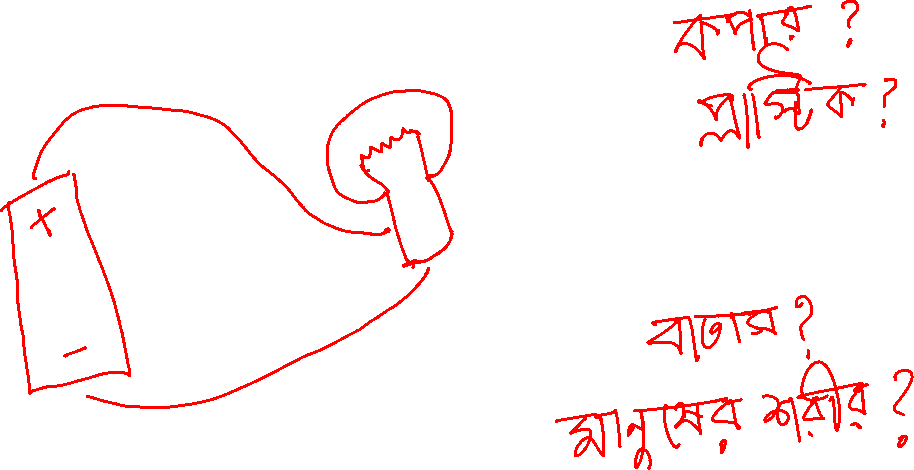 কপার ?
প্লাস্টিক ?
+
-
বাতাস ?
মানুষের শরীর ?